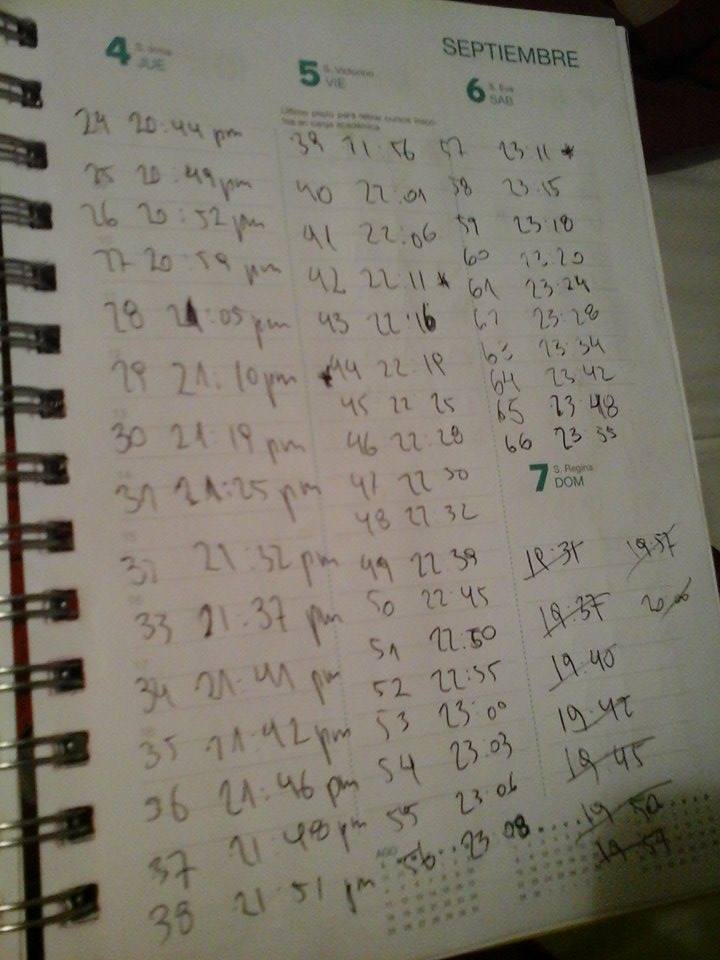 SEPTIEMBRE
4 JUE
24 20:44 pm
25 20:49 pm
26 20:52 pm
27 20:59 pm
28 21:05 pm
29 21:10 pm
30 21:19 pm
31 21:25 pm
32 21:32 pm
33 21:37 pm
34 21:41 pm
35 21:42 pm
36 21:46 pm
37 21 48 pm
38 21 51 pm
5 S. Victorino
VIE
39 21:56
40 22:01
41 22:06
42 22:11 *
43 22:16
*44 22 19
45 22 25
46 22:28
47 22 30
48 22 32
49 22:39
50 22:45
51 22:50
52 22:55
53 23:00
54 23:03
55 23:06
56 23 08
AGO
6 S. Eva
SAB
57 23:11 *
58 23:15
59 23:18
60 23:20
61 23:24
62 23:28
63 23:34
64 23:42
65 23 48
66 23 55
7 S. Regina
DOM
19:37
19:40
19:42
19:45
19 50
19 57
19:57